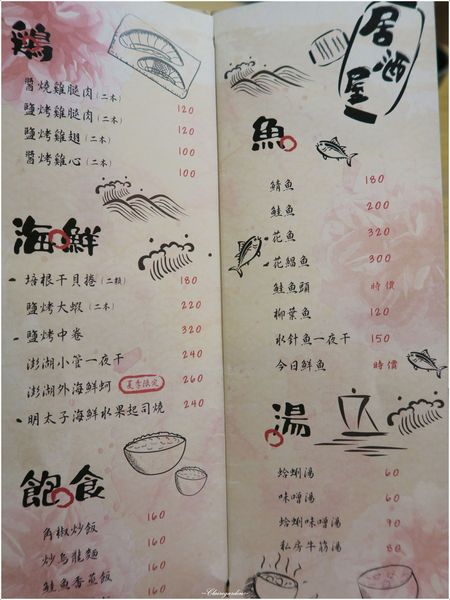 鶏
醬燒雞腿肉(二本) 120
鹽烤雞腿肉(二本) 120
鹽烤雞翅(二本) 100
醬烤雞心(二本) 100
海鮮
培根干貝捲(二顆) 180
鹽烤大蝦(二本) 220
鹽烤中卷 320
澎湖小管一夜干 240
澎湖外海鮮蚵 夏季限定 260
明太子海鮮水果起司燒 240
飽食
角椒炒飯 160
炒烏龍麵 160
鮭魚香蔥飯 160
居酒屋
魚
鯖魚 180
鮭魚 200
花魚 320
花鯧魚 300
鮭魚頭 時價
柳葉魚 120
水針魚一夜干 150
今日鮮魚 時價
湯
蛤蜊湯 60
味噌湯 60
蛤蜊味噌湯 70
私房牛筋湯 80